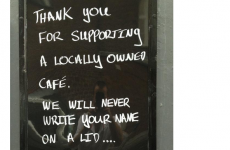 THANK YOU
FOR SUPPORTING
A LOCALLY OWNED
CAFÉ.
WE WILL NEVER
WRITE YOUR NAME
ON A LID....